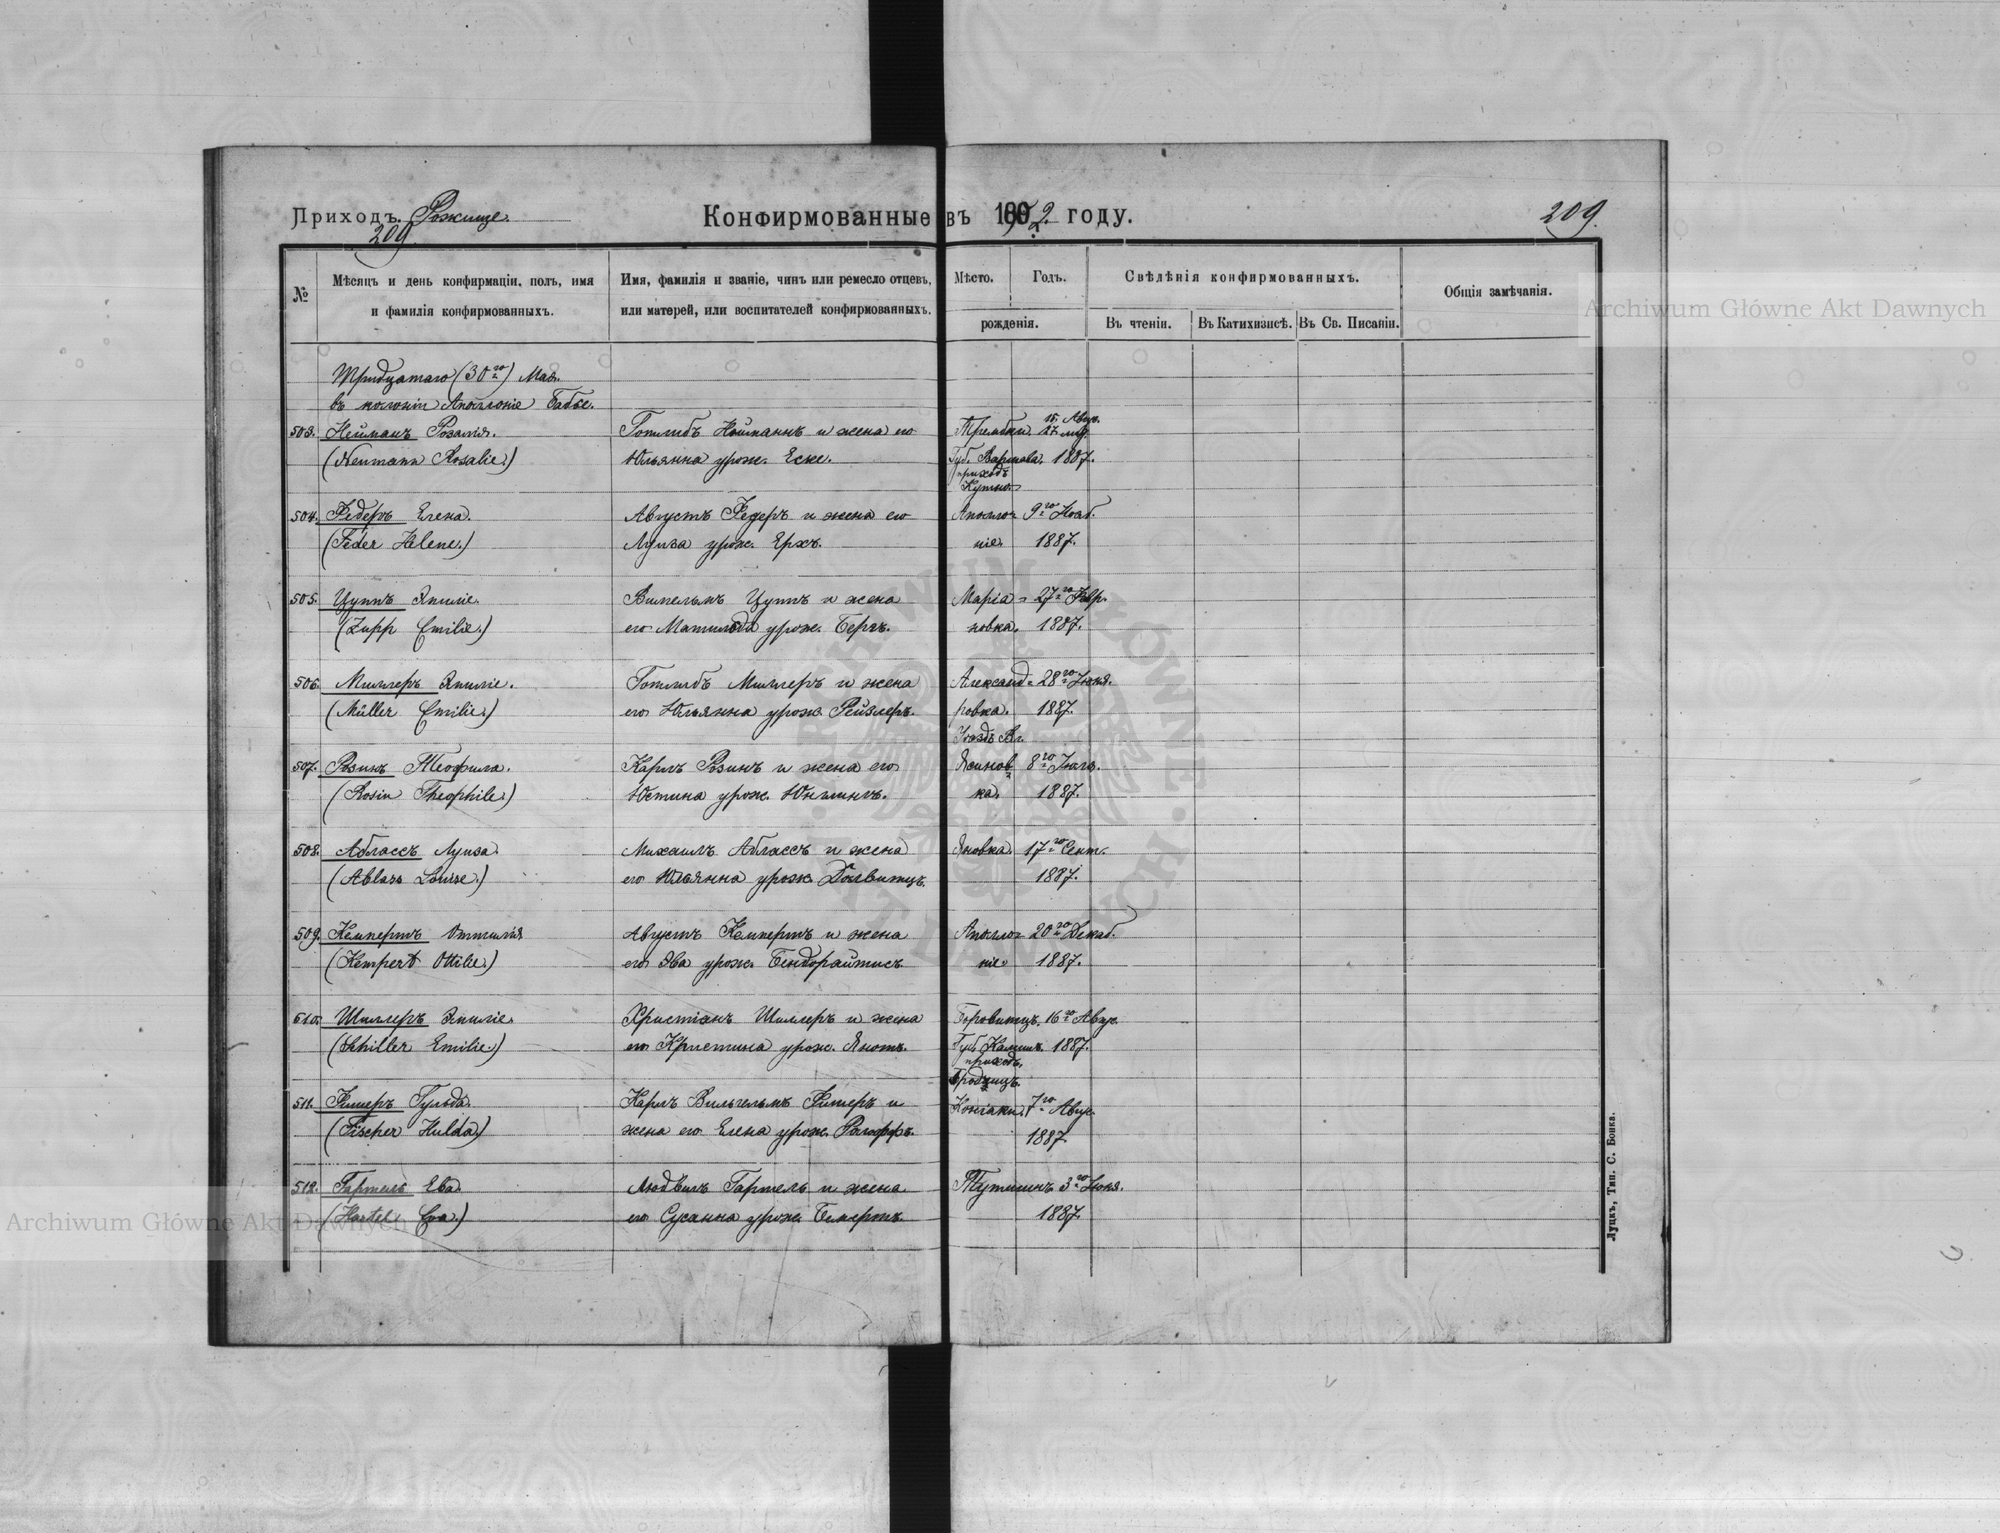 Приходъ. Рожище.
209.
Конфирмованные въ 1902 году.
209.
№
Мѣсяцъ и день конфирмаціи, полъ, имя
и фамилія конфирмованныхъ.
Имя, фамилія и званіе, чинъ или ремесло отцевъ,
или матерей, или воспитателей конфирмованныхъ.
Мѣсто.
Годъ.
рожденія.
Свѣдѣнія конфирмованныхъ.
Въ чтеніи.
Въ Катихизисѣ.
Въ Св. Писаніи.
Общія замѣчанія.
Тридцатаго (30го) Мая.
въ колоніи Аполоніе Бабье.
503. Нейманъ Розалія. Готлибъ Нойманнъ и жена его Трембки. 15. Авг. 27.
(Neumann Rosalie.) Юльянна урож. Еске. Губ. Варшава. 1887.
приходъ
Кутно.
504. Федеръ Елена. Августъ Федеръ и жена его Аполо= 9го Нояб.
(Feder Helene.) Луиза урож. Ерхъ. ніе. 1887.
505. Цуппъ Эмиліе. Вильгельмъ Цуппъ и жена Марія= 27го Февр.
(Zupp Emilie.) его Матильда урож. Бергъ. новка. 1887.
506. Миллеръ Эмиліе. Готлибъ Миллеръ и жена Александ= 28го Іюня.
(Müller Emilie.) его Юльянна урож. Рейзлеръ. ровка. 1887.
Уѣздъ
507. Розинъ Теофила. Карлъ Розинъ и жена его Ясинов= 8го Іюля.
(Rosin Theophile.) Юстина урож. Юнглингъ. ка. 1887.
508. Абласъ Луиза. Михаилъ Абласъ и жена Яновка. 17го Сент.
(Ablass Louise.) его Юльянна урож. 1887.
509. Кемпертъ Оттилія Августъ Кемпертъ и жена Аполо= 20го Декаб.
(Kempert Ottilie.) его Эва урож. Бендорайтисъ ніе. 1887.
510. Шиллеръ Эмиліе. Христіанъ Шиллеръ и жена Боровитцъ. 16го Авг.
(Schiller Emilie.) его Кристина урож. Янотъ. Губ. Калишъ. 1887.
приходъ
511. Фишеръ Гульда. Карлъ Вильгельмъ Фишеръ и 7го Авг.
(Fischer Hulda.) жена его Елена урож. Рольоффъ. 1887.
512. Гартель Ева. Людвигъ Гартель и жена Тутшинъ 3го Іюня.
(Hartel Eva.) его Сусанна урож. 1887.
Луцкъ, Тип. С. Бонка.
Archiwum Główne Akt Dawnych
Archiwum Główne Akt Dawnych
ARCHIWUM GŁÓWNE AKT DAWNYCH